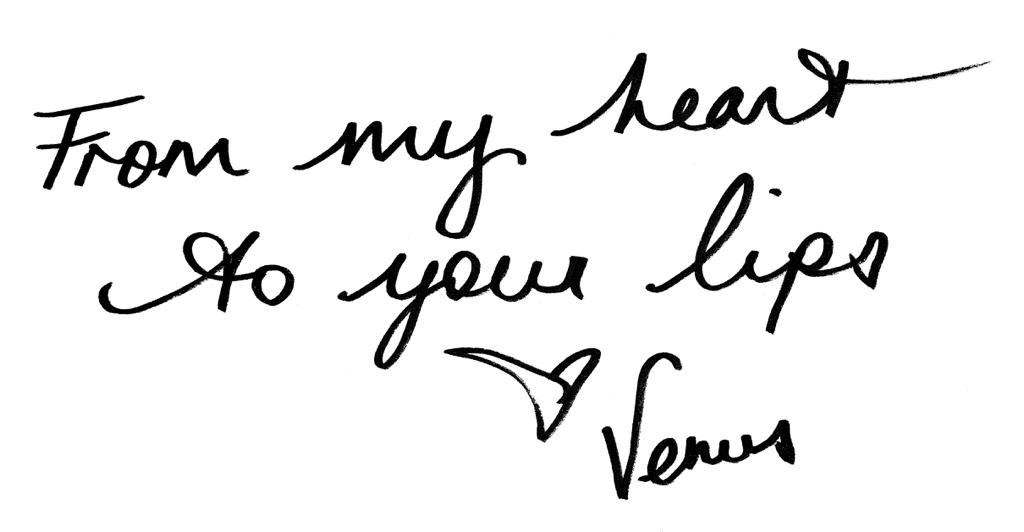 From my heart
to your lips
Venus